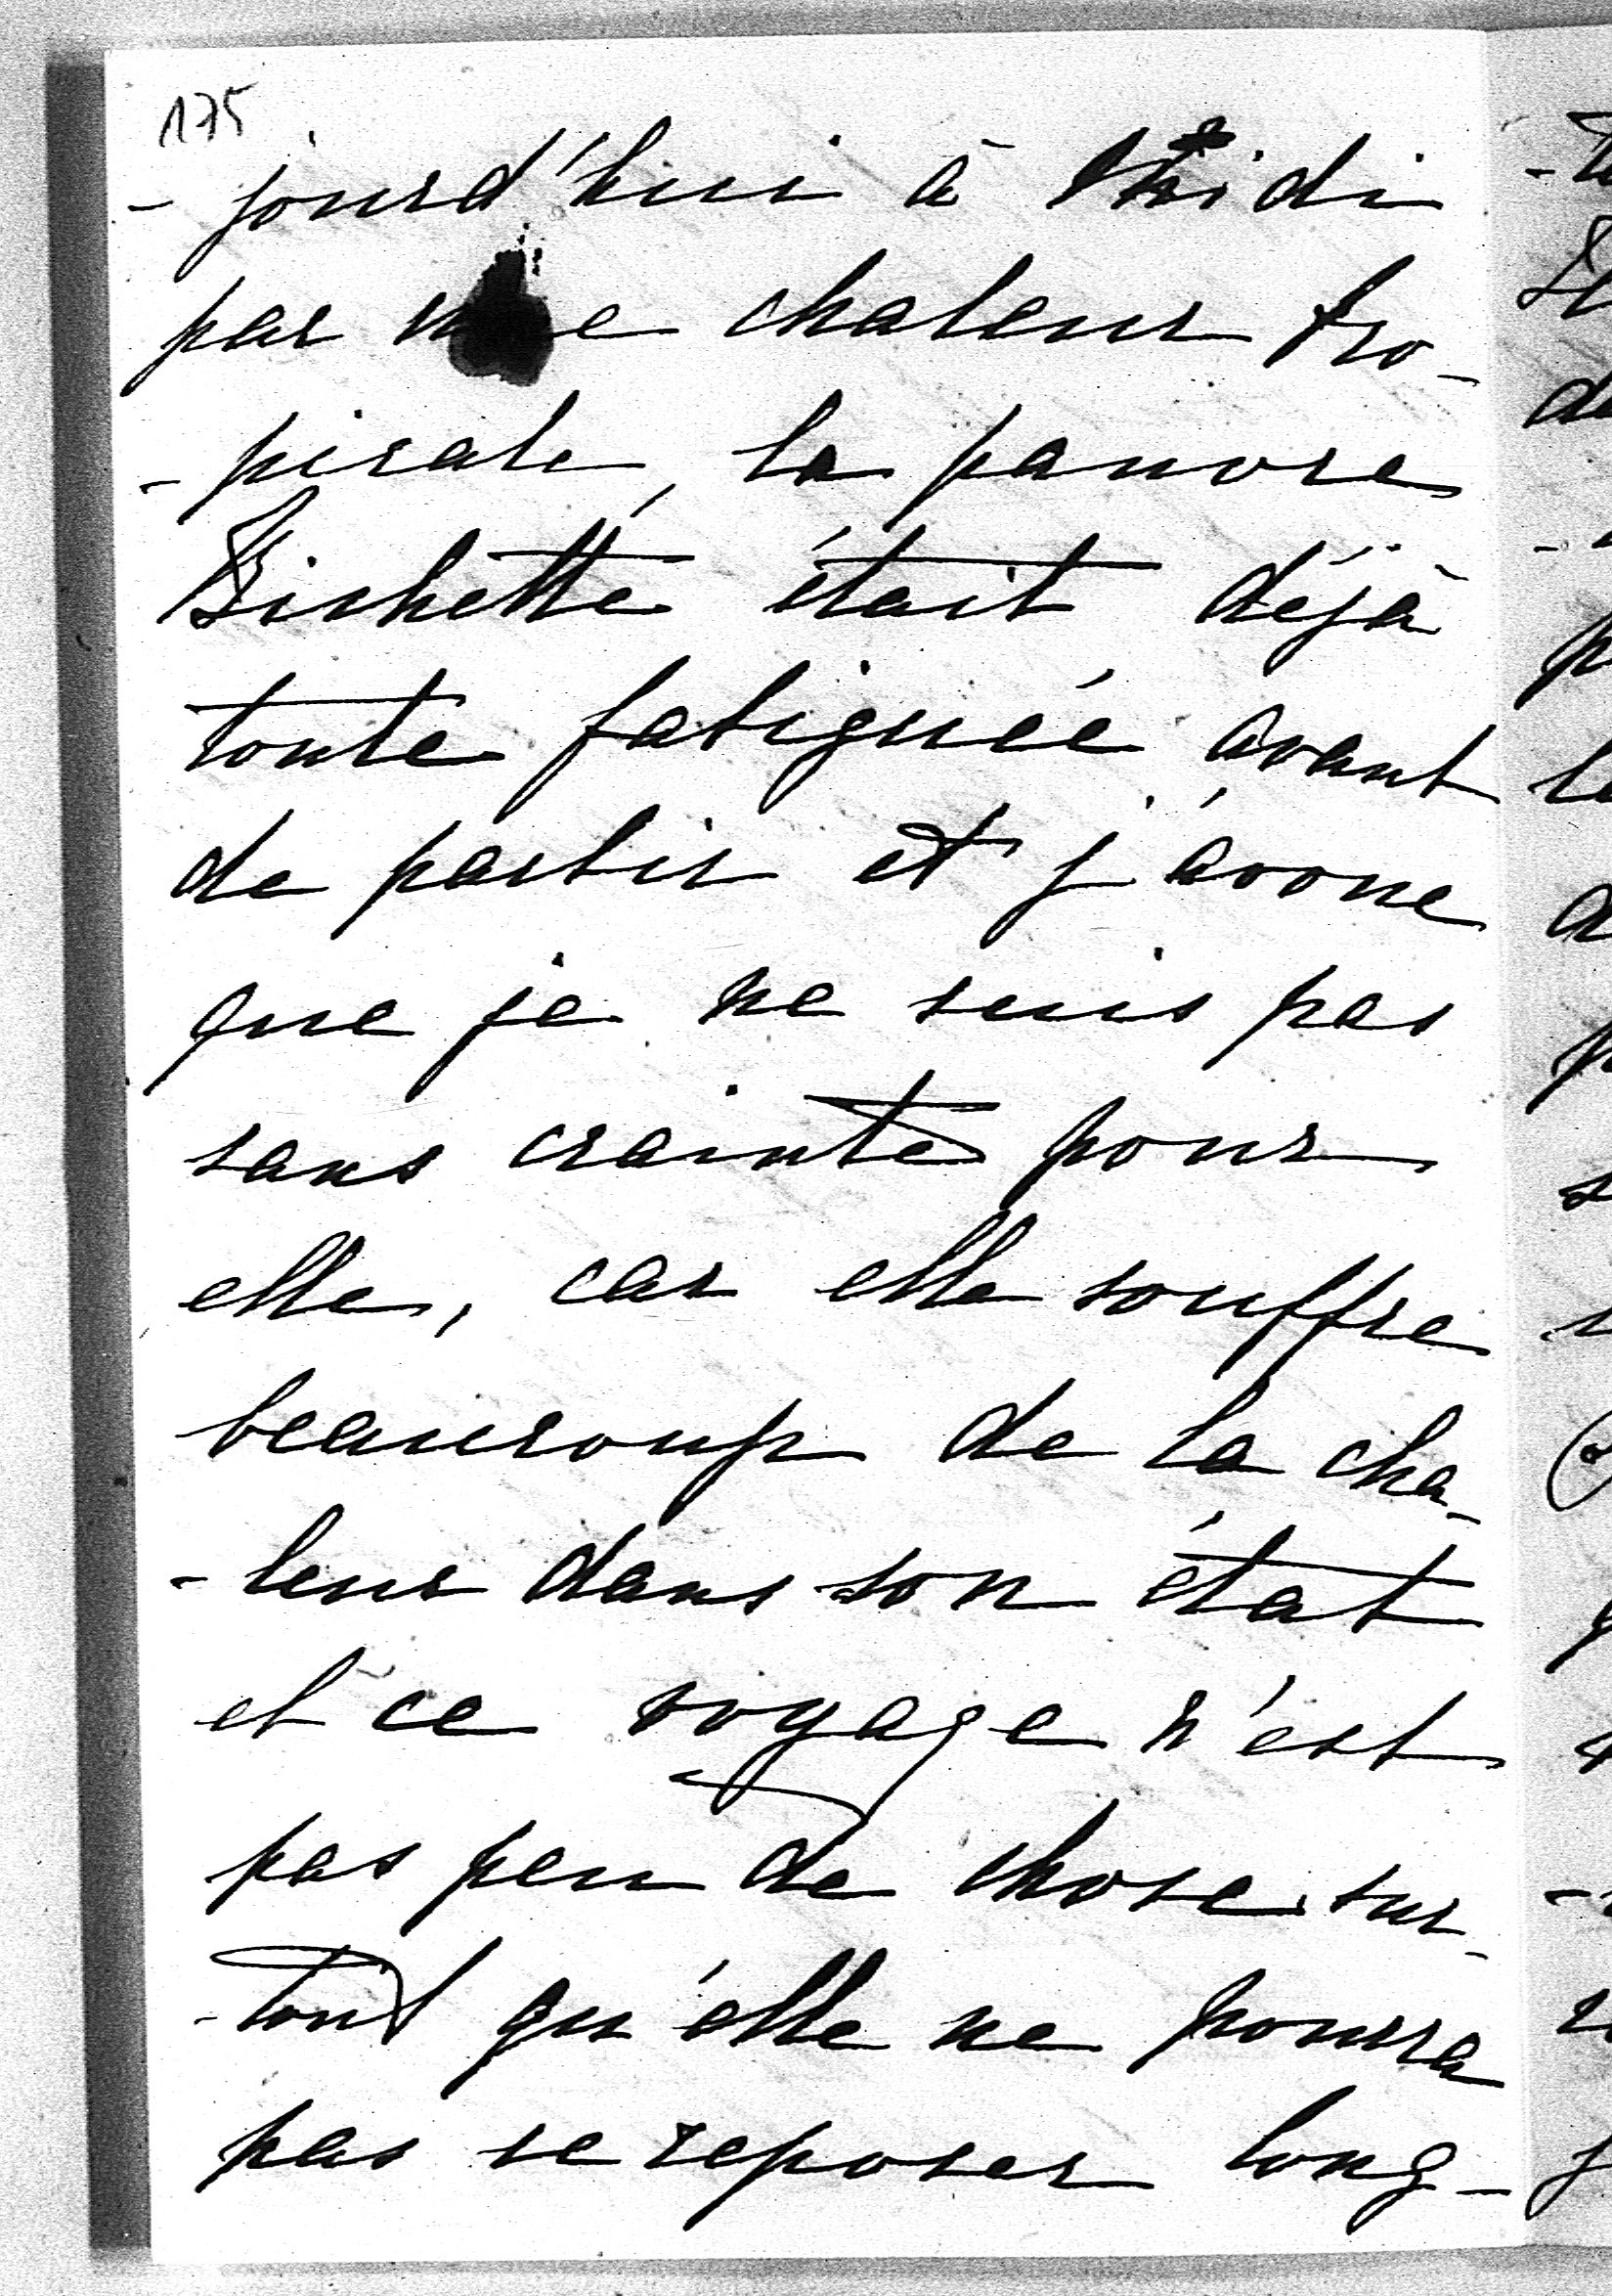 175
- jourd'hui à Midi
par une chaleur tro-
- picale, la pauvre
Bichette était déjà
toute fatiguée avant
de partir et j'avoue
que je ne suis pas
sans crainte pour
elle, car elle souffre
beaucoup de la cha-
- leur dans son état
et ce voyage n'est
pas peu de chose sur-
- tout qu'elle ne pourra
pas se reposer long-